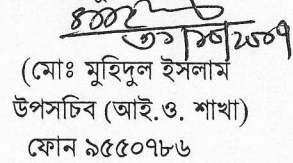 (মোঃ মুহিদুল ইসলাম
উপসচিব (আই.ও. শাখা)
ফোন ৯৫৫০৭৮৬